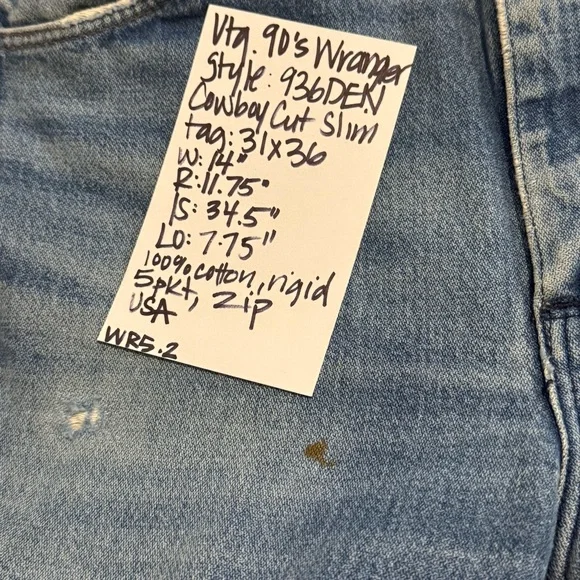 Vtg. 90's Wrangler
Style: 936DEN
Cowboy Cut Slim
tag: 31x36
W: 14"
R: 11.75"
IS: 34.5"
LO: 7.75"
100% cotton, rigid
5pkt, zip
USA
WR5.2